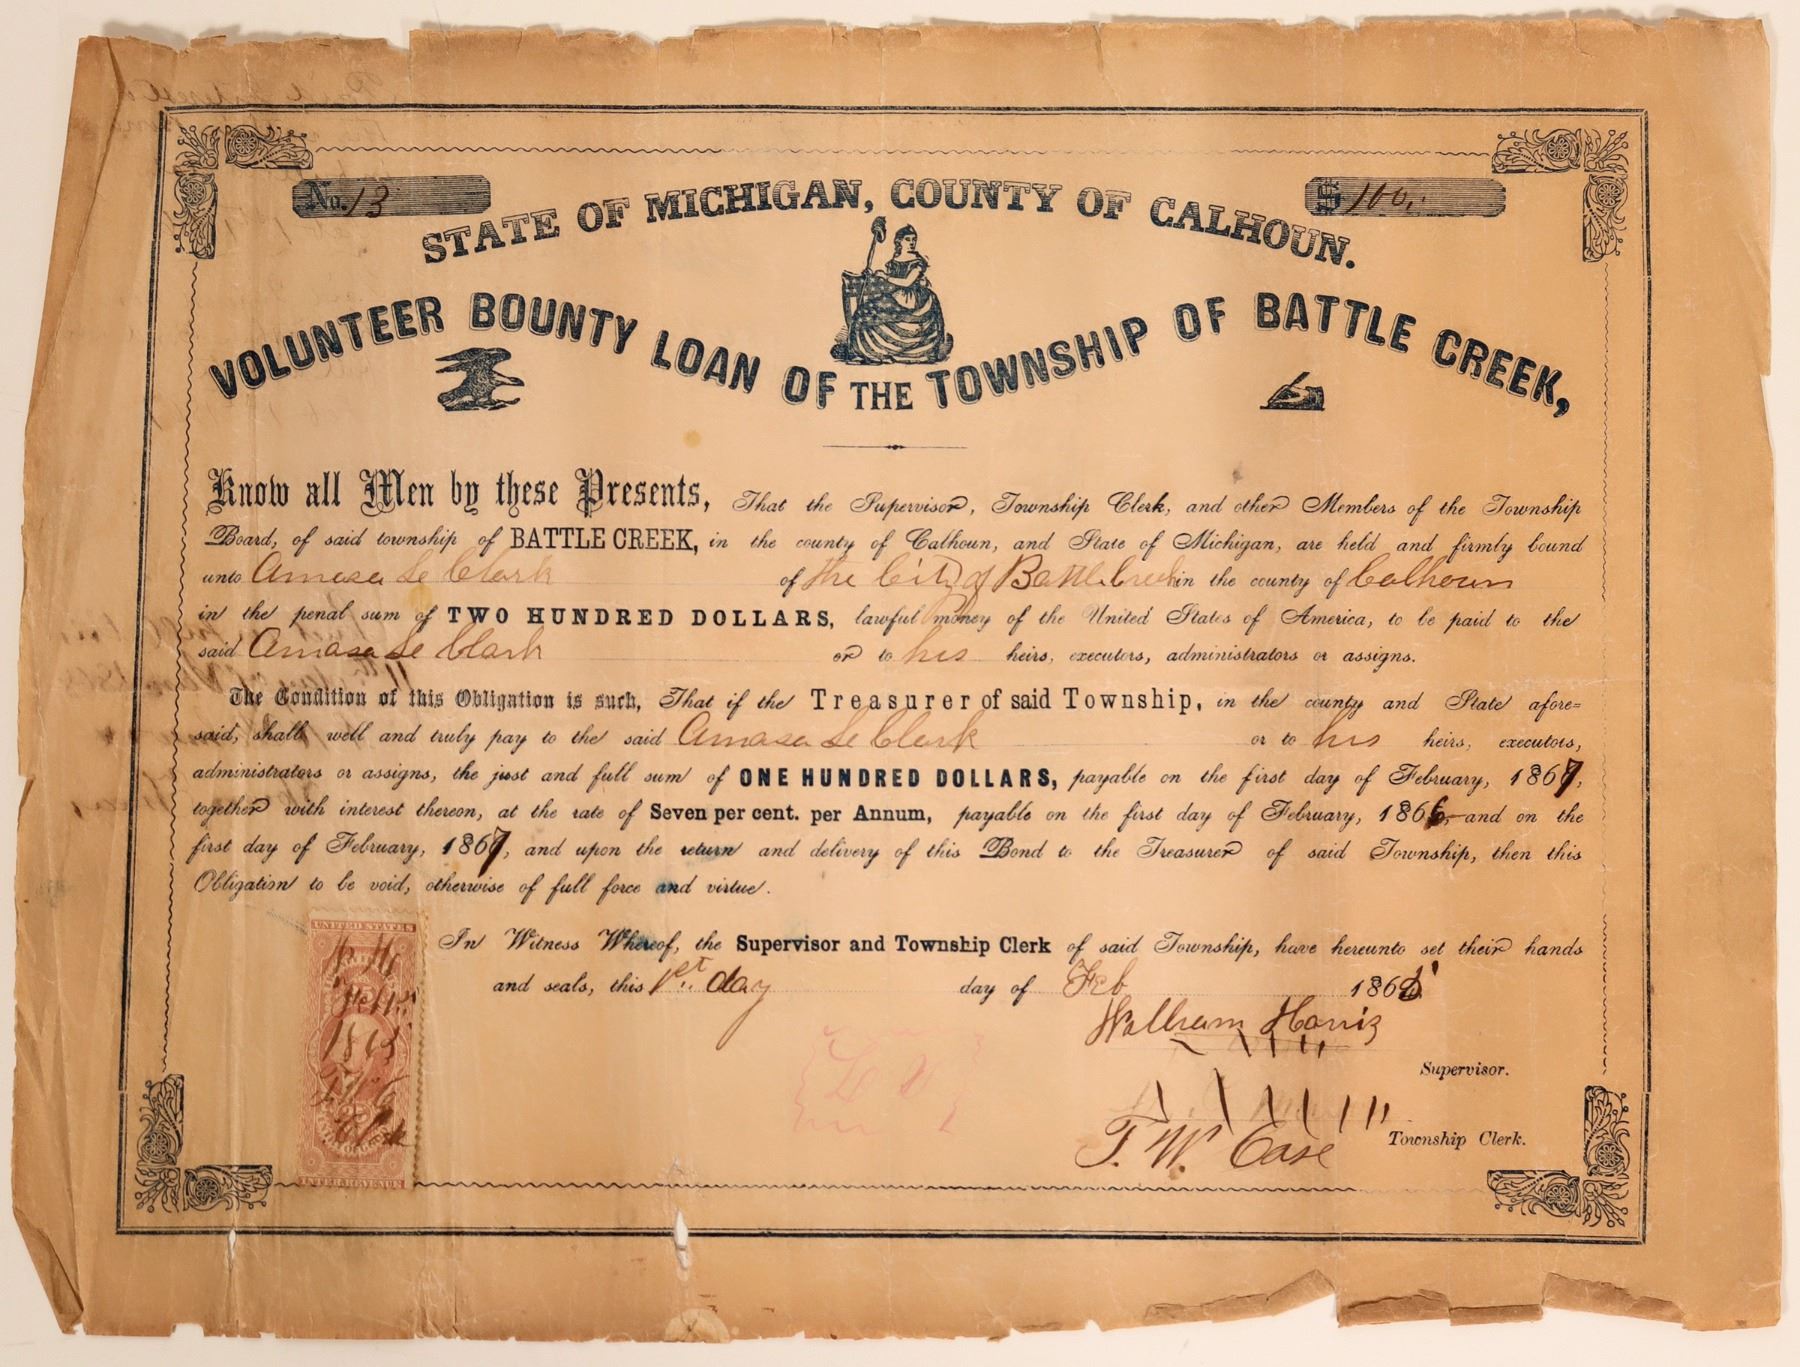 No. 13
$ 100.
STATE OF MICHIGAN, COUNTY OF CALHOUN.
VOLUNTEER BOUNTY LOAN OF THE TOWNSHIP OF BATTLE CREEK,
Know all Men by these Presents, That the Supervisor, Township Clerk, and other Members of the Township
Board, of said township of BATTLE CREEK, in the county of Calhoun, and State of Michigan, are held and firmly bound
unto Amasa Le Clark of the City of Battle Creek in the county of Calhoun
in the penal sum of TWO HUNDRED DOLLARS, lawful money of the United States of America, to be paid to the
said Amasa Le Clark or to his heirs, executors, administrators or assigns.
The Condition of this Obligation is such, That if the Treasurer of said Township, in the county and State afore=
said, shall well and truly pay to the said Amasa Le Clark or to his heirs, executors,
administrators or assigns, the just and full sum of ONE HUNDRED DOLLARS, payable on the first day of February, 1867,
together with interest thereon, at the rate of Seven per cent. per Annum, payable on the first day of February, 1866, and on the
first day of February, 1867, and upon the return and delivery of this Bond to the Treasurer of said Township, then this
Obligation to be void, otherwise of full force and virtue.
In Witness Whereof, the Supervisor and Township Clerk of said Township, have hereunto set their hands
and seals, this 1st. day day of Feb 1865
William Harris
Supervisor.
T. W. Case Township Clerk.
UNITED STATES
Feb
1865
Clerk
INTER. REVENUE